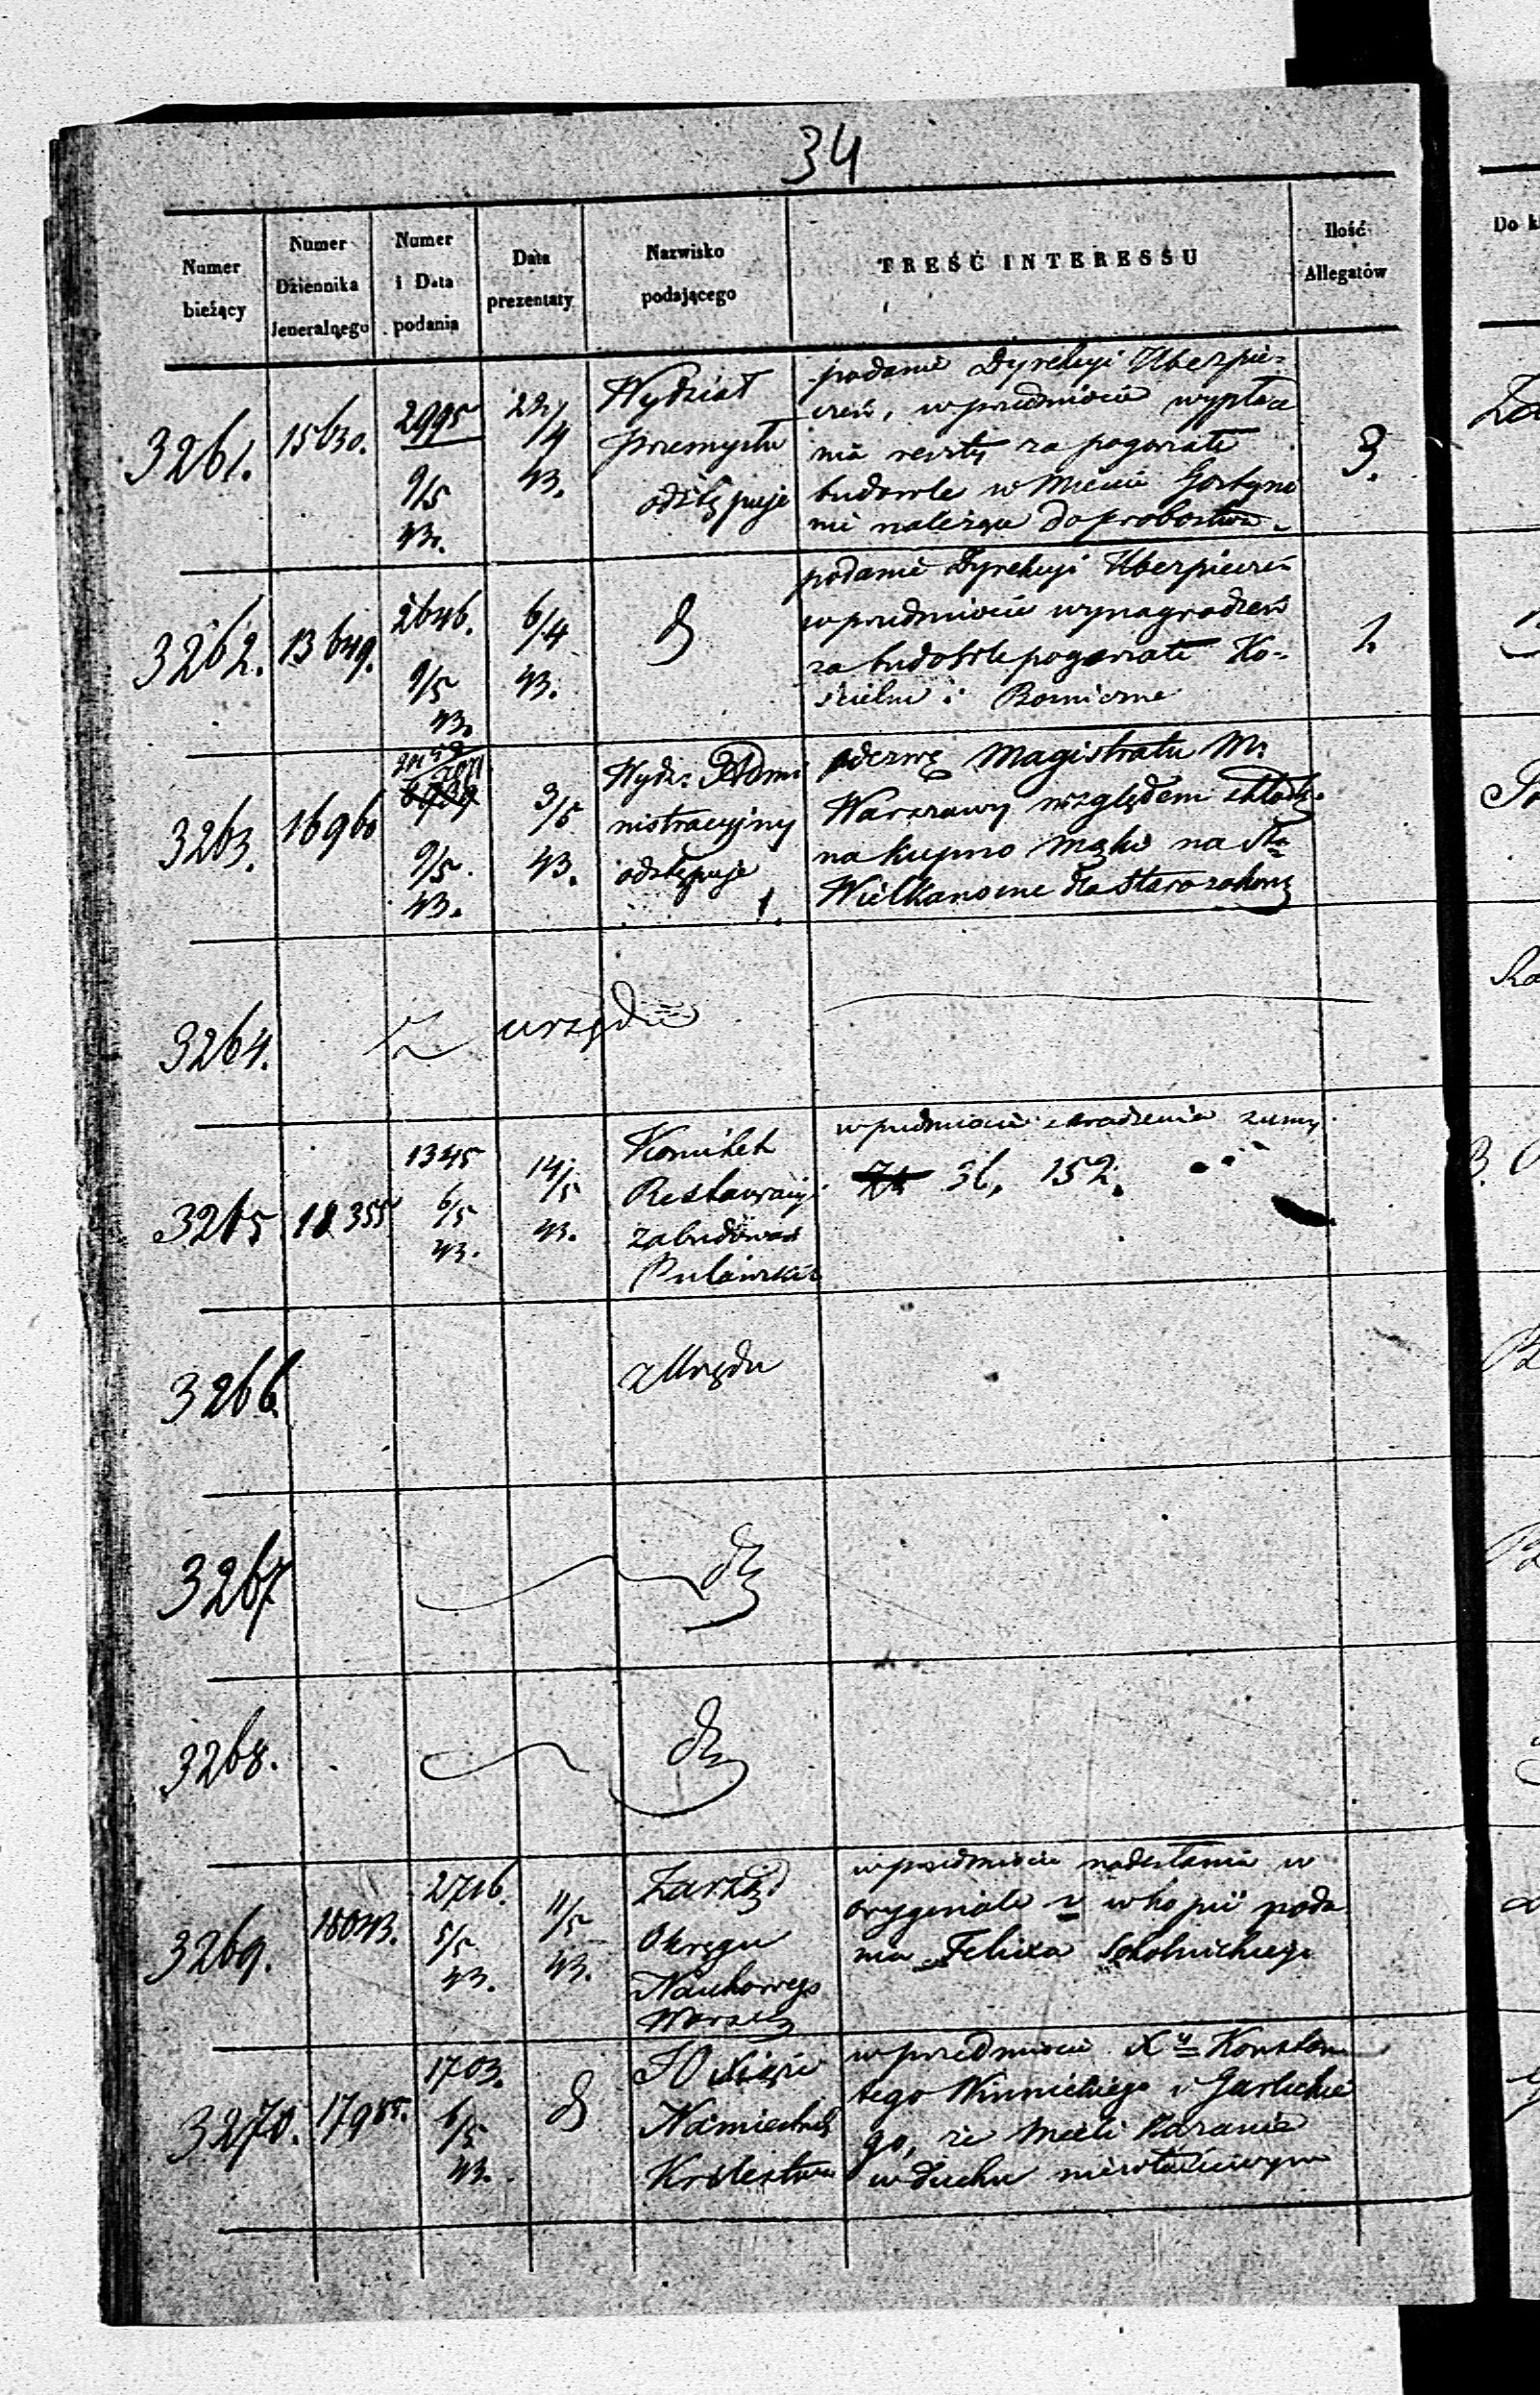 34
Numer bieżący
Numer Dziennika Jeneralnego
Numer i Data podania
Data prezentaty
Nazwisko podającego
TREŚĆ INTERESSU
Ilość Allegatów
Do k
3261.
15630.
2995
9/5
43.
22/4
43.
Wydział
przemysłu
odstępuje
podanie Dyrekcyi Ubezpie-
czeń, w przedmiocie wypłace
nia reszty za pogorzałe
budowle w Mieście
nie należące do probostwa.
3.
3262.
13649.
2646.
9/5
43.
6/4
43.
d
podanie Dyrekcyi Ubezpieczeń
w przedmiocie wynagrodzeń
za budowle pogorzałe Ko-
ścielne i Bożnicze
1.
3263.
16960
9/5
43.
3/5
43.
Wydz. Admi
nistracyjny
odstępuje
1.
odezwę Magistratu M.
Warszawy względem składki
na kupno mąki na
Wielkanocne dla Starozakon
3264.
Z urzędu
3265
18355
1345
6/5
43.
14/5
43.
Komitet
Restauracyi
zabudowań
Puławskich
w przedmiocie zaradzenia sumy
36, 152.
3266.
z Urzędu
3267
3268.
3269.
18043.
2716.
5/5
43.
11/5
43.
Zarząd
Okręgu
Naukowego
Warsz
w przedmiocie nadesłania w
oryginale v w kopii poda
nia Felixa Sokolnickiego
3270.
17985.
1703.
6/5
43.
d
JO Xiąże
Namiestnik
Królestwa
w przedmiocie X Konstan
tego Winnickiego i Garlickie
go, że mieli Kazanie
w duchu niewłaściwym